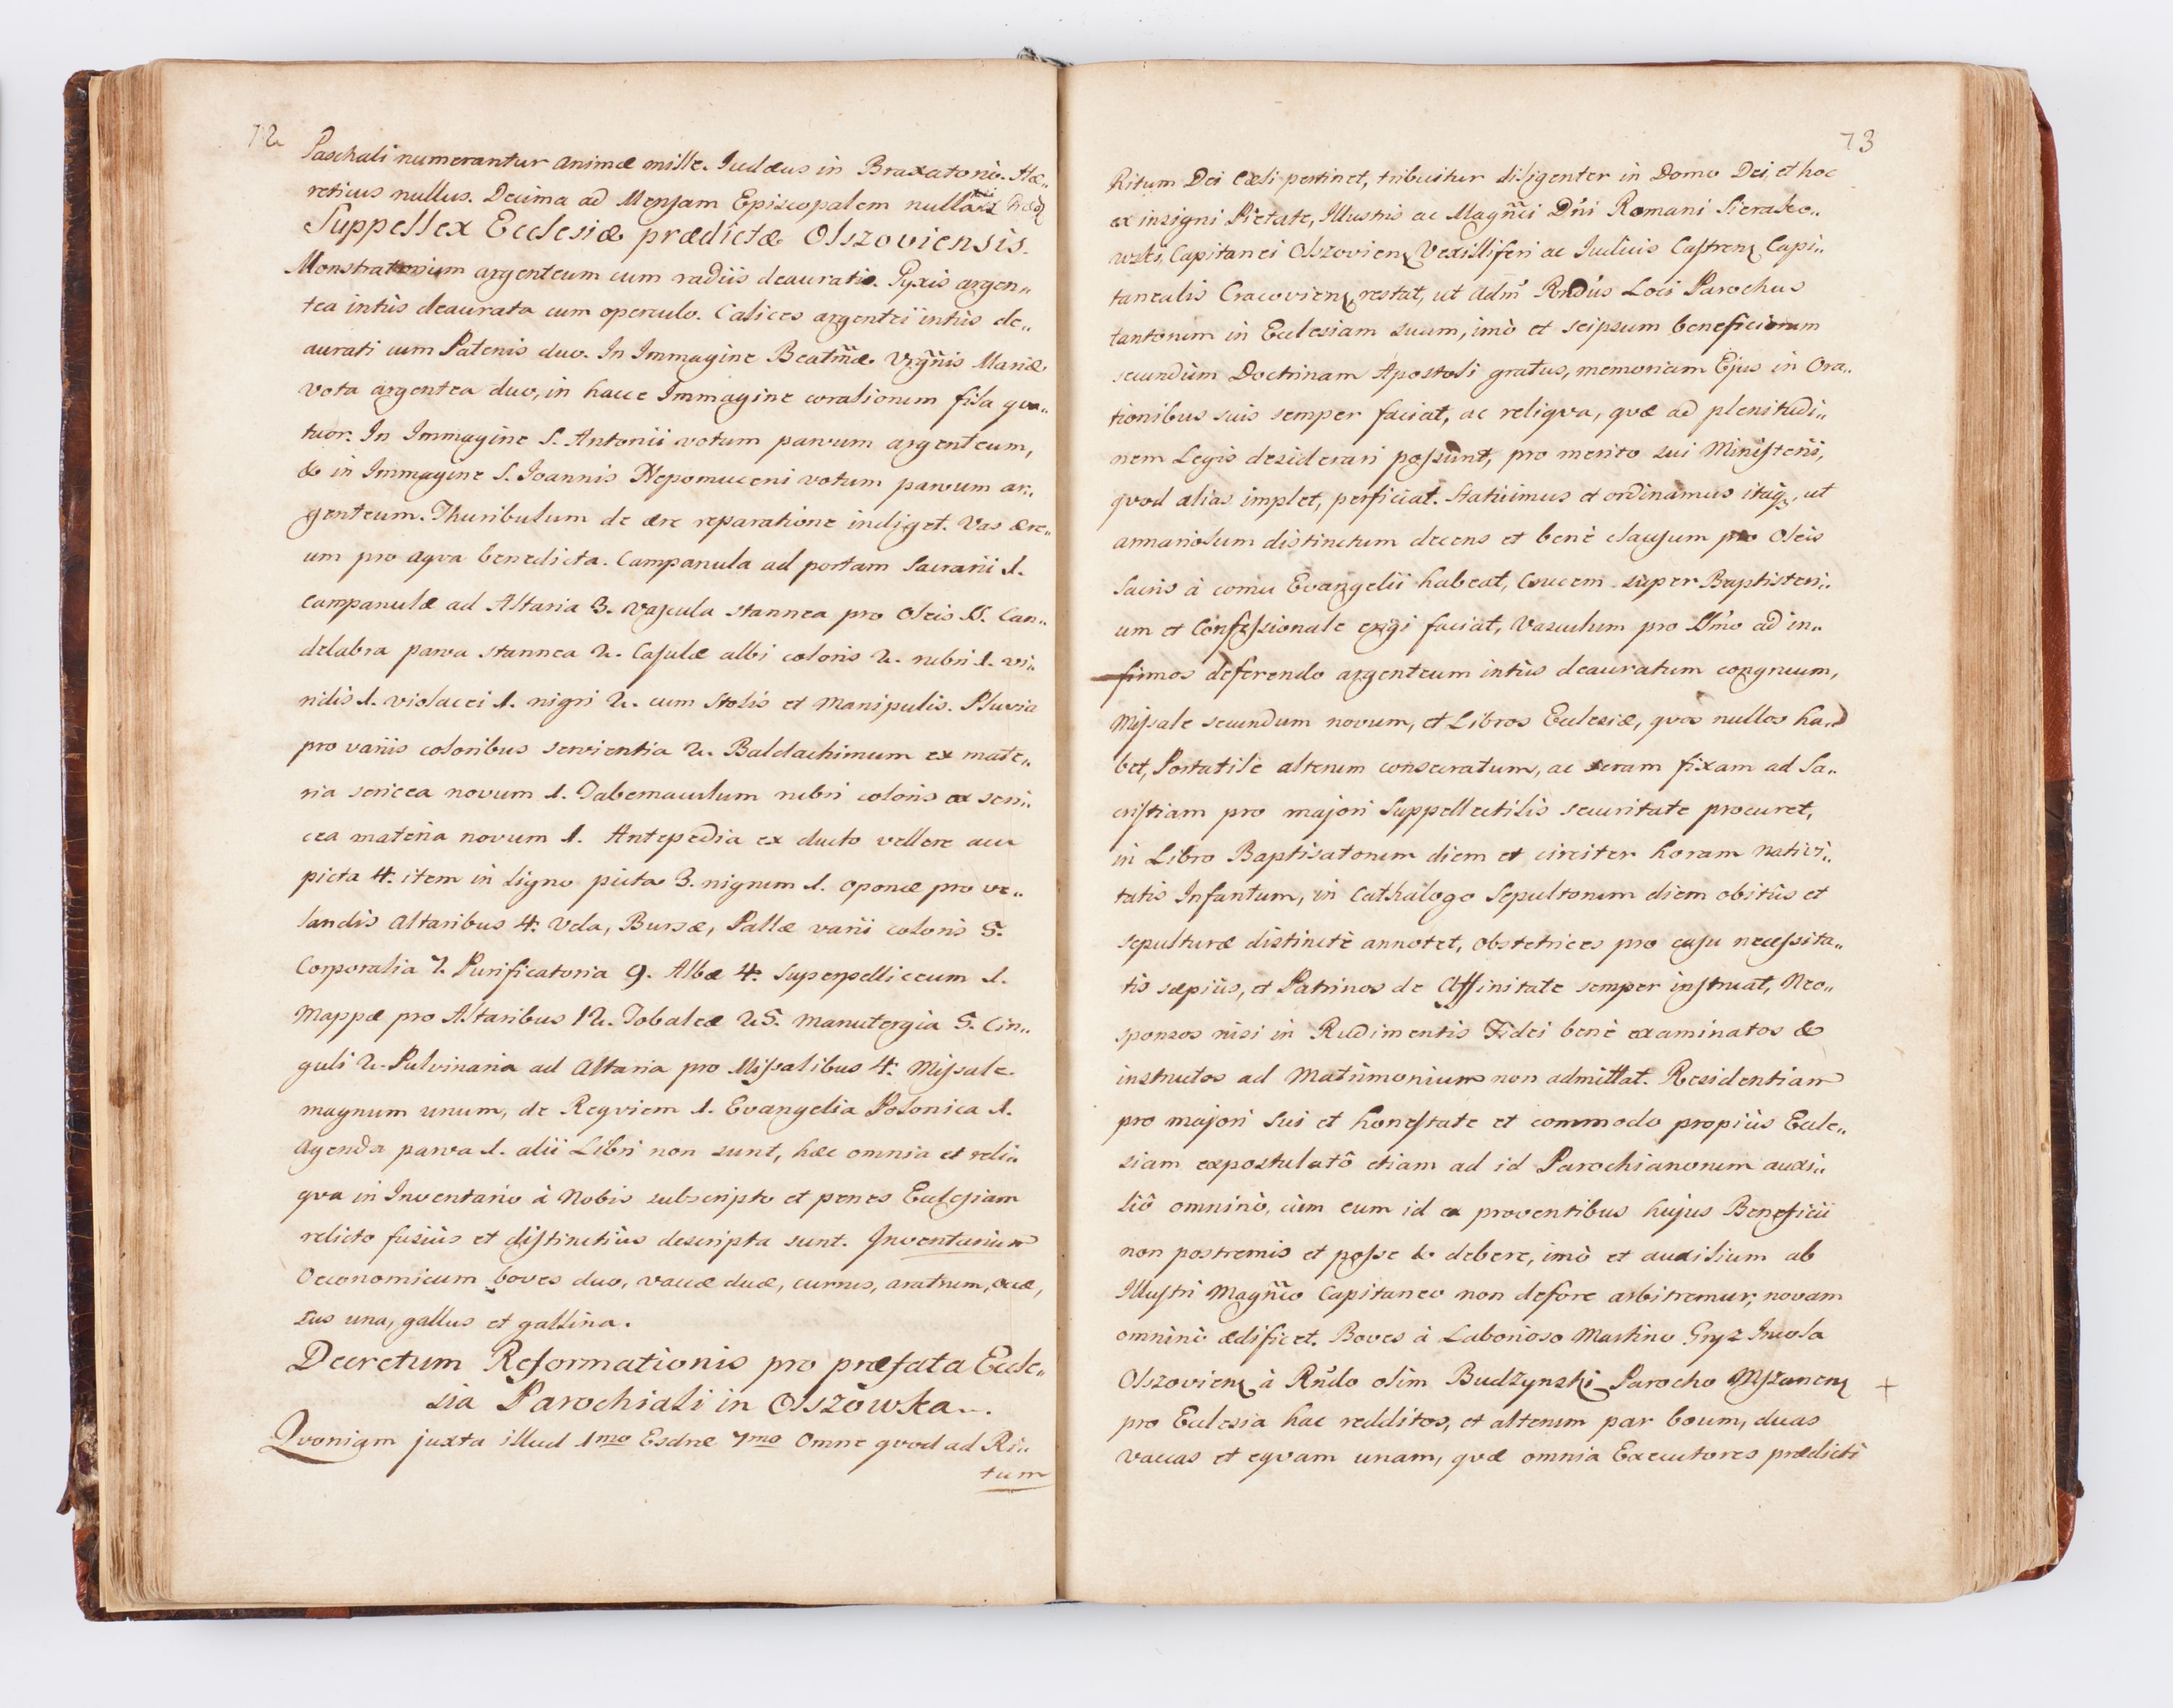 72
Paschali numerantur animæ mille. Iudæus in Braxatorio. Hæ„
reticus nullus. Decima ad Mensam Episcopalem nulla
Suppellex Ecclesiæ prædictæ Olszoviensis.
Monstratorium argenteum cum radiis deauratis. Pyxis argen„
tea intùs deaurata cum operculo. Calices argentei intùs de„
aurati cum Patenis duo. In Immagine Beatm̃æ Vrgñis Mariæ
vota argentea duo, in hacce Immagine coraliorum fila qva„
tuor. In Immagine S. Antonii votum parvum argenteum,
& in Immagine S. Ioannis Nepomuceni votum parvum ar„
genteum. Thuribulum de ære reparatione indiget. Vas ære„
um pro aqva benedicta. Campanula ad portam Sacrarii 1.
Campanulæ ad Altaria 3. vascula stannea pro Oleis SS. Can„
delabra parva stannea 2. Casulæ albi coloris 2. rubri 1. vi„
ridis 1. violacei 1. nigri 2. cum Stolis et Manipulis. Pluvia
pro variis coloribus servientia 2. Baldachimum ex mate„
ria sericea novum 1. Tabernaculum rubri coloris ex seri„
cea materia novum 1. Antepedia ex ducto vellere acu
picta 4. item in Ligno picta 3. nigrum 1. Oponæ pro ve„
landis Altaribus 4. Vela, Bursæ, Pallæ varii coloris 5.
Corporalia 7. Purificatoria 9. Albæ 4. Superpelliceum 1.
Mappæ pro Altaribus 12. Tobaleæ 25. Manutergia 5. Cin„
guli 2. Pulvinaria ad Altaria pro Missalibus 4. Missale
magnum unum, de Reqviem 1. Evangelia Polonica 1.
Agenda parva 1. alii Libri non sunt, hæc omnia et reli„
qva in Inventario à Nobis subscripto et penes Ecclesiam
relicto fusiùs et distinctiùs descripta sunt. Inventarium
Oeconomicum boves duo, vaccæ duæ, currus, aratrum, occæ,
sus una, gallus et gallina.
Decretum Reformationis pro præfata Eccle„
sia Parochiali in Olszówka.
Qvoniam juxta illud 1mo Esdræ 7mo Omne qvod ad Ri„
tum
73
Ritum Dei Cæli pertinet, tribuitur diligenter in Domo Dei, et hoc
ex insigni Pietate, Illustris ac Magñci Dńi Romani Sierako„
wski, Capitanei Olszovien Vexilliferi ac Iudicis Castren Capi„
tanealis Cracovien restat, ut Adm̃ Rńdus Loci Parochus
tantorum in Ecclesiam suum, imò et seipsum beneficiorum
secundùm Doctrinam Apostoli gratus, memoriam Ejus in Ora„
tionibus suis semper faciat, ac reliqva, qvæ ad plenitudi„
nem Legis desiderari possunt, pro merito sui Ministerii,
qvod alias implet, perficiat. Statuimus et ordinamus itaq, ut
armariolum distinctum decens et benè clausum pro Oleis
Sacris à cornu Evangelii habeat, Crucem super Baptisteri„
um et Confessionale erigi faciat, Vasculum pro SSmo ad in„
firmos deferendo argenteum intùs deauratum congruum,
Missale secundum novum, et Libros Ecclesiæ, qvos nullos ha„
bet, Portatile alterum consecratum, ac seram fixam ad Sa„
cristiam pro majori Suppellectilis securitate procuret,
in Libro Baptisatorum diem et circiter horam nativi„
tatis Infantum, in Cathalogo Sepultorum diem obitùs et
sepulturæ distinctè annotet, Obstetrices pro casu necessita„
tis sæpiùs, et Patrinos de Affinitate semper instruat, Neo„
sponsos nisi in Rudimentis Fidei benè examinatos &
instructos ad Matrimonium non admittat. Residentiam
pro majori sui et honestate et commodo propiùs Eccle„
siam expostulatô etiam ad id Parochianorum auxi„
liô omninò, cùm eum id ex proventibus hujus Beneficii
non postremis et posse & debere, imò et auxilium ab
Illustri Magñco Capitaneo non defore arbitremur, novam
omninò ædificet. Boves à Laborioso Martino Gryz Incola
Olszovien à Rńdo olim Budzynski Parocho Mszanen +
pro Ecclesia hac redditos, et alterum par boum, duas
vaccas et eqvam unam, qvæ omnia Executores prædicti